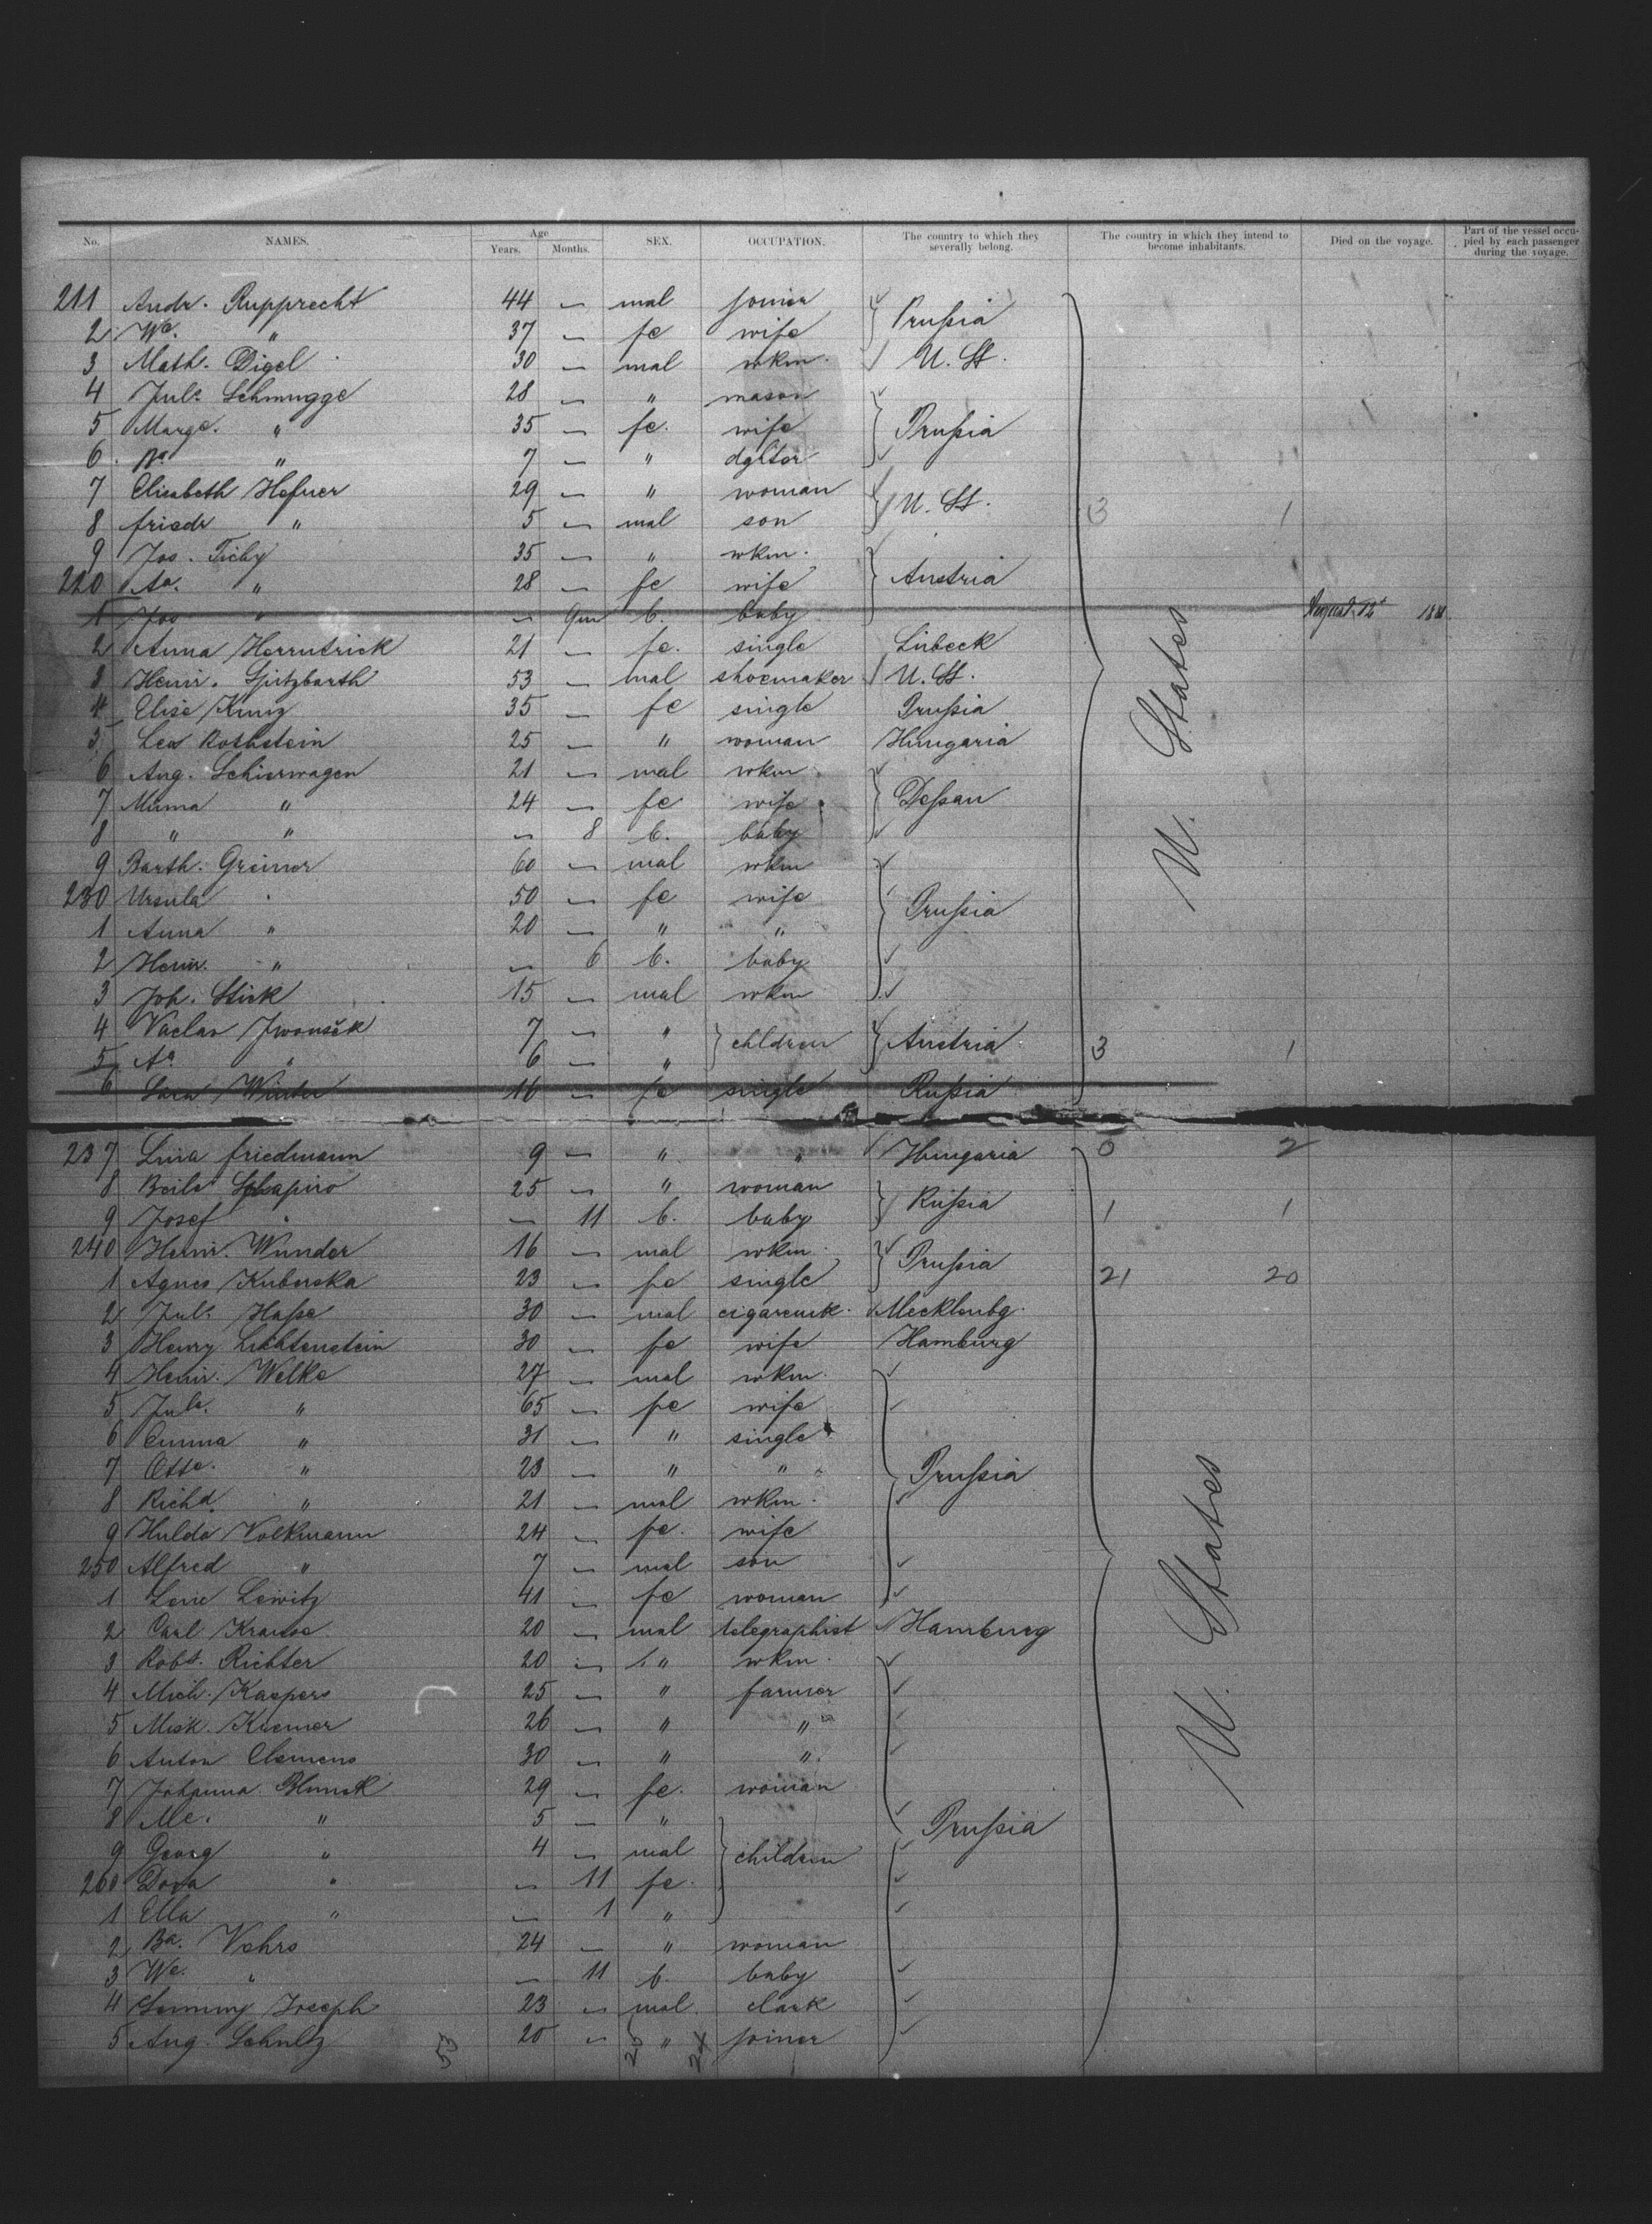 No. NAMES. Age Years. Months. SEX. OCCUPATION. The country to which they severally belong. The country in which they intend to become inhabitants. Died on the voyage. Part of the vessel occupied by each passenger during the voyage.
211 Andr. Rupprecht 44 — mal joiner Prußia
2 We. " 37 — fe wife
3 Math. Digel 30 — mal wkm. U. St.
4 Juls. Schmugge 28 — " mason
5 Marge. " 35 — fe. wife Prußia
6 Ba " 7 — " dghter
7 Elisabeth Hefner 29 — " woman U. St.
8 friedr " 5 — mal son 3 1
9 Jos. Tichy 35 — " wkm.
220 Aa. " 28 — fe wife Austria
1 Jos " — 9m b. baby August 12t
2 Anna Herrntrick 21 — fe. single Lübeck
3 Heinr. Spitzbarth 53 — mal shoemaker U. St.
4 Elise Kunz 35 — fe single Prußia
5 Lea Rothstein 25 — " woman Hungaria
6 Aug. Schierwagen 21 — mal wkm
7 Minna " 24 — fe wife Deßau
8 " " — 8 b. baby
9 Barth. Greiner 60 — mal wkm
230 Ursula " 50 — fe wife Prußia
1 Anna " 20 — " "
2 Heinr. " — 6 b. baby
3 Joh. Stirk 15 — mal wkm
4 Vaclav 7 — " children Austria 3 1
5 Aa. " 6 — "
6 Sara Winter 16 — fe single Rußia
U. States
237 Lina friedmann 9 — " " Hungaria 0 2
8 Beile Schapiro 25 — " woman Rußia
9 Josef " — 11 b. baby 1 1
240 Heinr. Wunder 16 — mal wkm. Prußia
1 Agnes Kuberska 23 — fe single 21 20
2 Juls. Haße 30 — mal cigarmk. Mecklenbg.
3 Henry Lichtenstein 30 — fe wife Hamburg
4 Heinr. Welke 27 — mal wkm.
5 Jule. " 65 — fe wife
6 Emma " 31 — " single
7 Otte. " 23 — " " Prußia
8 Richd. " 21 — mal wkm.
9 Hulda Volkmann 24 — fe. wife
250 Alfred " 7 — mal son
1 Lene Lewitz 41 — fe woman
2 Carl Krause 20 — mal telegraphist Hamburg
3 Robt. Richter 20 — " wkm.
4 Mich. Kaspers 25 — " farmer
5 Mich. Kremer 26 — " "
6 Anton Clemens 30 — " "
7 Johanna 29 — fe. woman
8 Me. " 5 — " children Prußia
9 Georg " 4 — mal
260 Dora " — 11 fe.
1 Ella " — 1 "
2 Ba. Vehrs 24 — " woman
3 We. " — 11 b. baby
4 Joseph 23 — mal clerk
5 Aug. Schulz 20 — " joiner
U. States
53